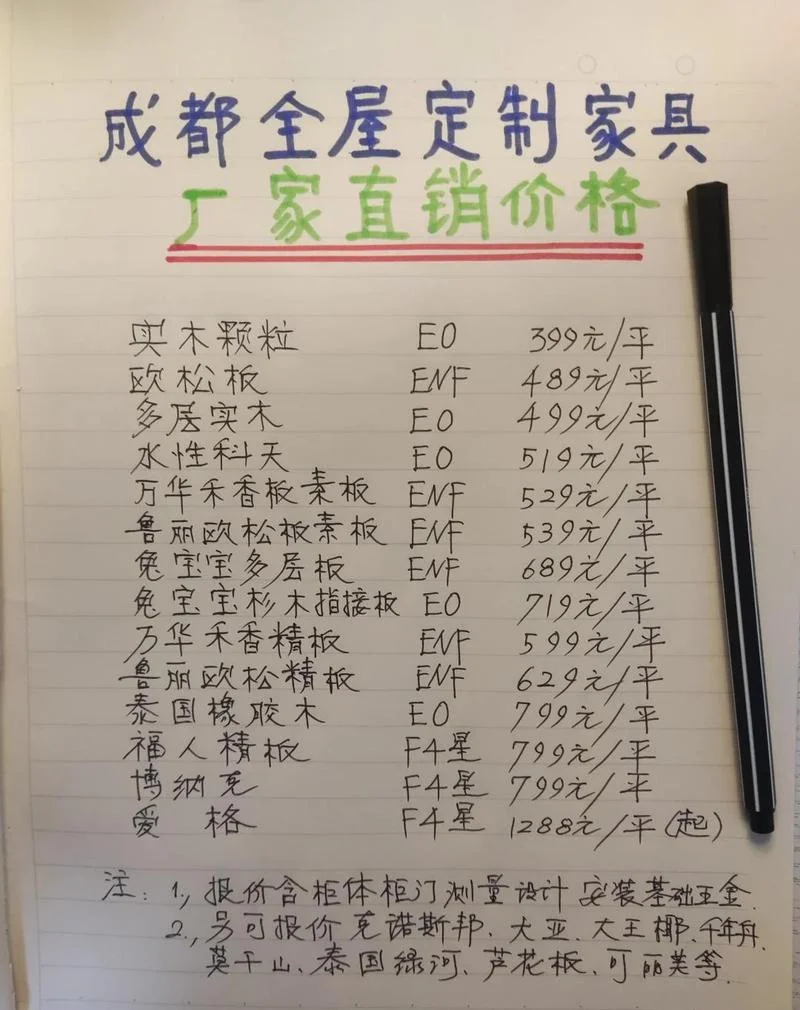 成都全屋定制家具
厂家直销价格
实木颗粒 E0 399元/平
欧松板 ENF 489元/平
多层实木 E0 499元/平
水性科天 E0 519元/平
万华禾香板素板 ENF 529元/平
鲁丽欧松板素板 ENF 539元/平
兔宝宝多层板 ENF 689元/平
兔宝宝杉木指接板 E0 719元/平
万华禾香精板 ENF 599元/平
鲁丽欧松精板 ENF 629元/平
泰国橡胶木 E0 799元/平
福人精板 F4星 799元/平
博纳克 F4星 799元/平
爱格 F4星 1288元/平(起)
注:1,、报价含柜体柜门测量设计安装基础五金.
2,、另可报价克诺斯邦、大亚、大王椰、千年舟、
莫干山、泰国绿河、芦花板、可丽芙等.